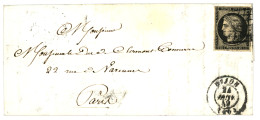 Monsieur
Monsieur le Duc de Clermont Tonnerre
22 rue de Varenne
Paris
DIJON